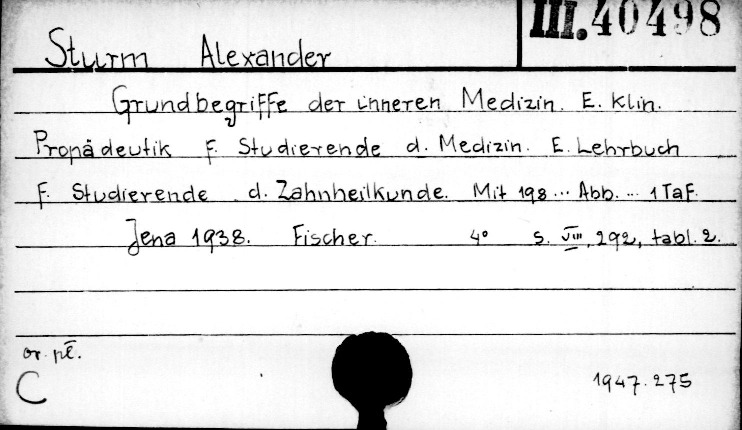 III. 40498
Sturm Alexander
Grundbegriffe der inneren Medizin. E. klin.
Propädeutik f. Studierende d. Medizin. E. Lehrbuch
f. Studierende d. Zahnheilkunde. Mit 198 ... Abb. ... 1 Taf.
Jena 1938. Fischer. 4° S. VIII, 292, tabl. 2.
or. pł.
C
1947.275